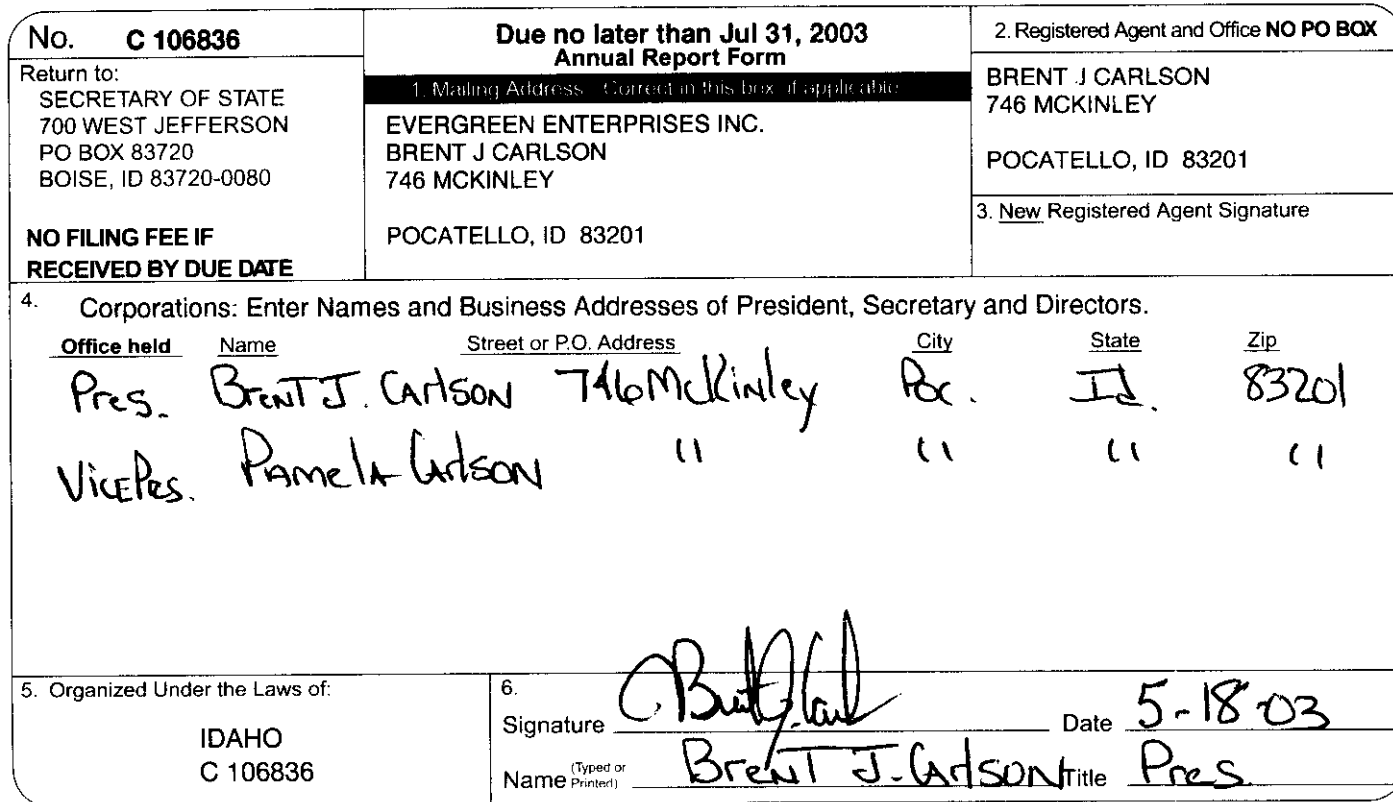 No. C 106836
Return to:
SECRETARY OF STATE
700 WEST JEFFERSON
PO BOX 83720
BOISE, ID 83720-0080
NO FILING FEE IF
RECEIVED BY DUE DATE
Due no later than Jul 31, 2003
Annual Report Form
1. Mailing Address Correct in this box if applicable
EVERGREEN ENTERPRISES INC.
BRENT J CARLSON
746 MCKINLEY
POCATELLO, ID 83201
2. Registered Agent and Office NO PO BOX
BRENT J CARLSON
746 MCKINLEY
POCATELLO, ID 83201
3. New Registered Agent Signature
4. Corporations: Enter Names and Business Addresses of President, Secretary and Directors.
Office held Name Street or P.O. Address City State Zip
Pres. Brent J. Carlson 746 McKinley Poc. Id. 83201
Vice Pres. Pamela Carlson " " " "
5. Organized Under the Laws of:
IDAHO
C 106836
6.
Signature Brent J. Carl Date 5-18-03
Name (Typed or Printed) Brent J. Carlson Title Pres.